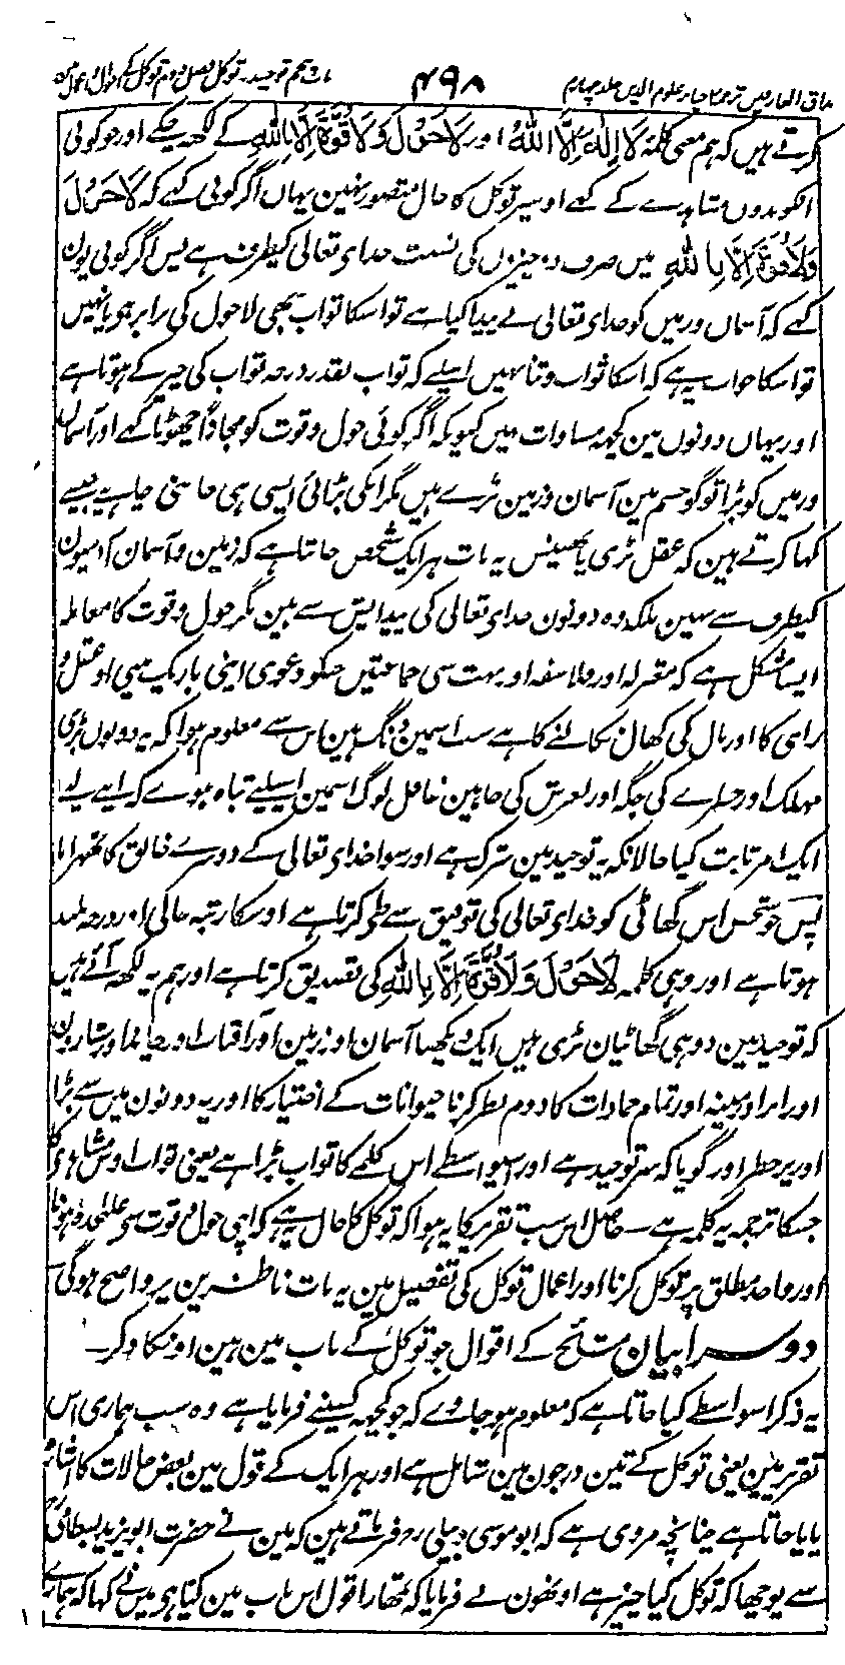 مذاق العارفین ترجمہ احیاء علوم الدین جلد چہارم ۴۹۸ باب پنجم توحید و توکل فصل دوم توکل کے احوال و اعمال میں
کرتے ہیں کہ ہم معنی کلمۂ لَا اِلٰهَ اِلَّا اللهُ اور لَا حَوْلَ وَلَا قُوَّةَ اِلَّا بِاللهِ کے لکھ چکے اور جو کوئی
انکو بدوں مشاہدے کے کہے اوسپر توکل کا حال متصور نہین یہاں اگر کوئی کہے کہ لَا حَوْلَ
وَلَا قُوَّةَ اِلَّا بِاللهِ میں صرف دو چیزوں کی نسبت خدای تعالی کیطرف ہے پس اگر کوئی یون
کہے کہ آسمان و زمین کو خدای تعالی نے پیدا کیا ہے تو اسکا ثواب بھی لاحول کی برابر ہو یا نہیں
تو اسکا جواب یہ ہے کہ اسکا ثواب وتنا نہیں اسلیے کہ ثواب بقدر درجہ ثواب کی چیز کے ہوتا ہے
اور یہاں دونوں مین کچھ مساوات نہیں کیونکہ اگر کوئی حول و قوت کو مجازاً چھوٹا کہے اور آسمان
و زمین کو بڑا تو گو جسم مین آسمان و زمین بڑے ہیں مگر انکی بڑائی ایسی ہی جاننی چاہیے جیسے
کہا کرتے ہین کہ عقل بڑی یا بھینس یہ بات ہر ایک شخص جانتا ہے کہ زمین و آسمان آدمیون
کیطرف سے نہین بلکہ وہ دونون خدای تعالی کی پیدایش سے ہین مگر حول و قوت کا معاملہ
ایسا مشکل ہے کہ معتزلہ اور فلاسفہ اور بہت سی جماعتیں جنکو دعوی اپنی باریک بینی اور عقل و
رای کا اور بال کی کھال نکالنے کا ہے سب اسمین دنگ ہین اس سے معلوم ہوا کہ یہ دونوں بڑی
مہلک اور خطرے کی جگہ اور لغزش کی جا ہین غافل لوگ اسمین اسلیے تباہ ہوے کہ اپنے لیے
ایک امر ثابت کیا حالانکہ یہ توحید مین شرک ہے اور سوا خدای تعالی کے دوسرے خالق کا ٹھہرانا
پس جو شخص اس گھاٹی کو خدای تعالی کی توفیق سے طی کرتا ہے اوسکا رتبہ عالی اور درجہ بلند
ہوتا ہے اور وہی کلمہ لَا حَوْلَ وَلَا قُوَّةَ اِلَّا بِاللهِ کی تصدیق کرتا ہے اور ہم یہ لکھ آئے ہیں
کہ توحید مین دو ہی گھاٹیان بڑی ہیں ایک دیکھنا آسمان اور زمین اور آفتاب اور چاند اور ستارون
اور ابر اور مینہ اور تمام جمادات کا دوم نظر کرنا حیوانات کے اختیار کا اور یہ دونون میں سے بڑا
اور پر خطر اور گویا کہ سر توحید ہے اور اسیواسطے اس کلمے کا ثواب بڑا ہے یعنی ثواب اوس مشاہدے کا
جسکا ترجمہ یہ کلمہ ہے۔ حاصل اس سب تقریر کا یہ ہوا کہ توکل کا حال یہ ہے کہ اپنی حول و قوت سے علٰحدہ ہونا
اور واحد مطلق پر توکل کرنا اور اعمال توکل کی تفصیل مین یہ بات ناظرین پر واضح ہوگی
دوسرا بیان مشائخ کے اقوال جو توکل کے باب مین ہین اونکا ذکر۔
یہ ذکر اسواسطے کیا جاتا ہے کہ معلوم ہو جاوے کہ جو کچھ کسینے فرمایا ہے وہ سب ہماری اس
تقریر مین یعنی توکل کے تین درجون مین شامل ہے اور ہر ایک کے قول مین بعض حالات کا اشارہ
پایا جاتا ہے چنانچہ مروی ہے کہ ابو موسی دیلی رح فرماتے ہین کہ مین نے حضرت ابو یزید بسطامی رح
سے پوچھا کہ توکل کیا چیز ہے اونھون نے فرمایا کہ تمھارا قول اس باب مین کیا ہو میں نے کہا کہ ہمارے